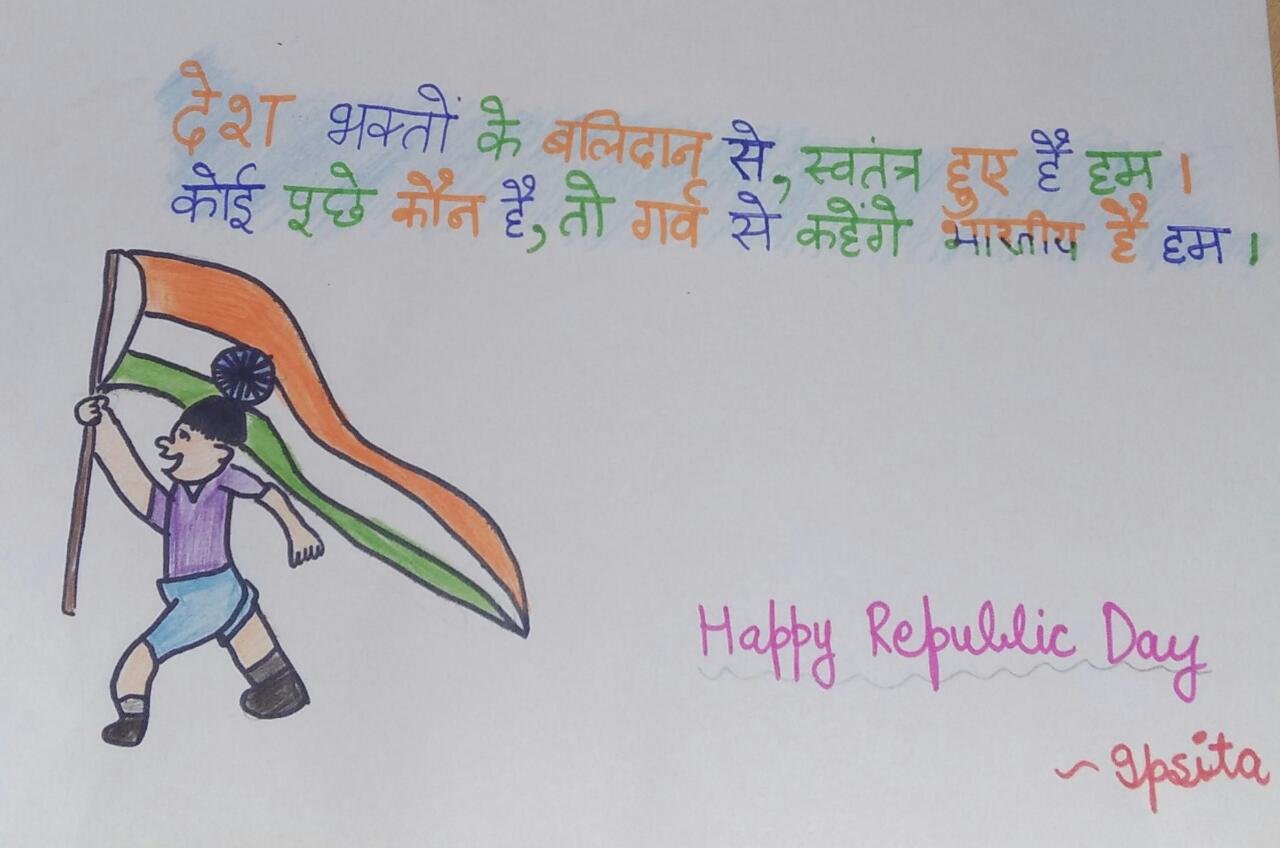 देश भक्तों के बलिदान से, स्वतंत्र हुए है हम ।
कोई पूछे कौन है, तो गर्व से कहेंगे भारतीय है हम ।
Happy Republic Day
~ Ipsita